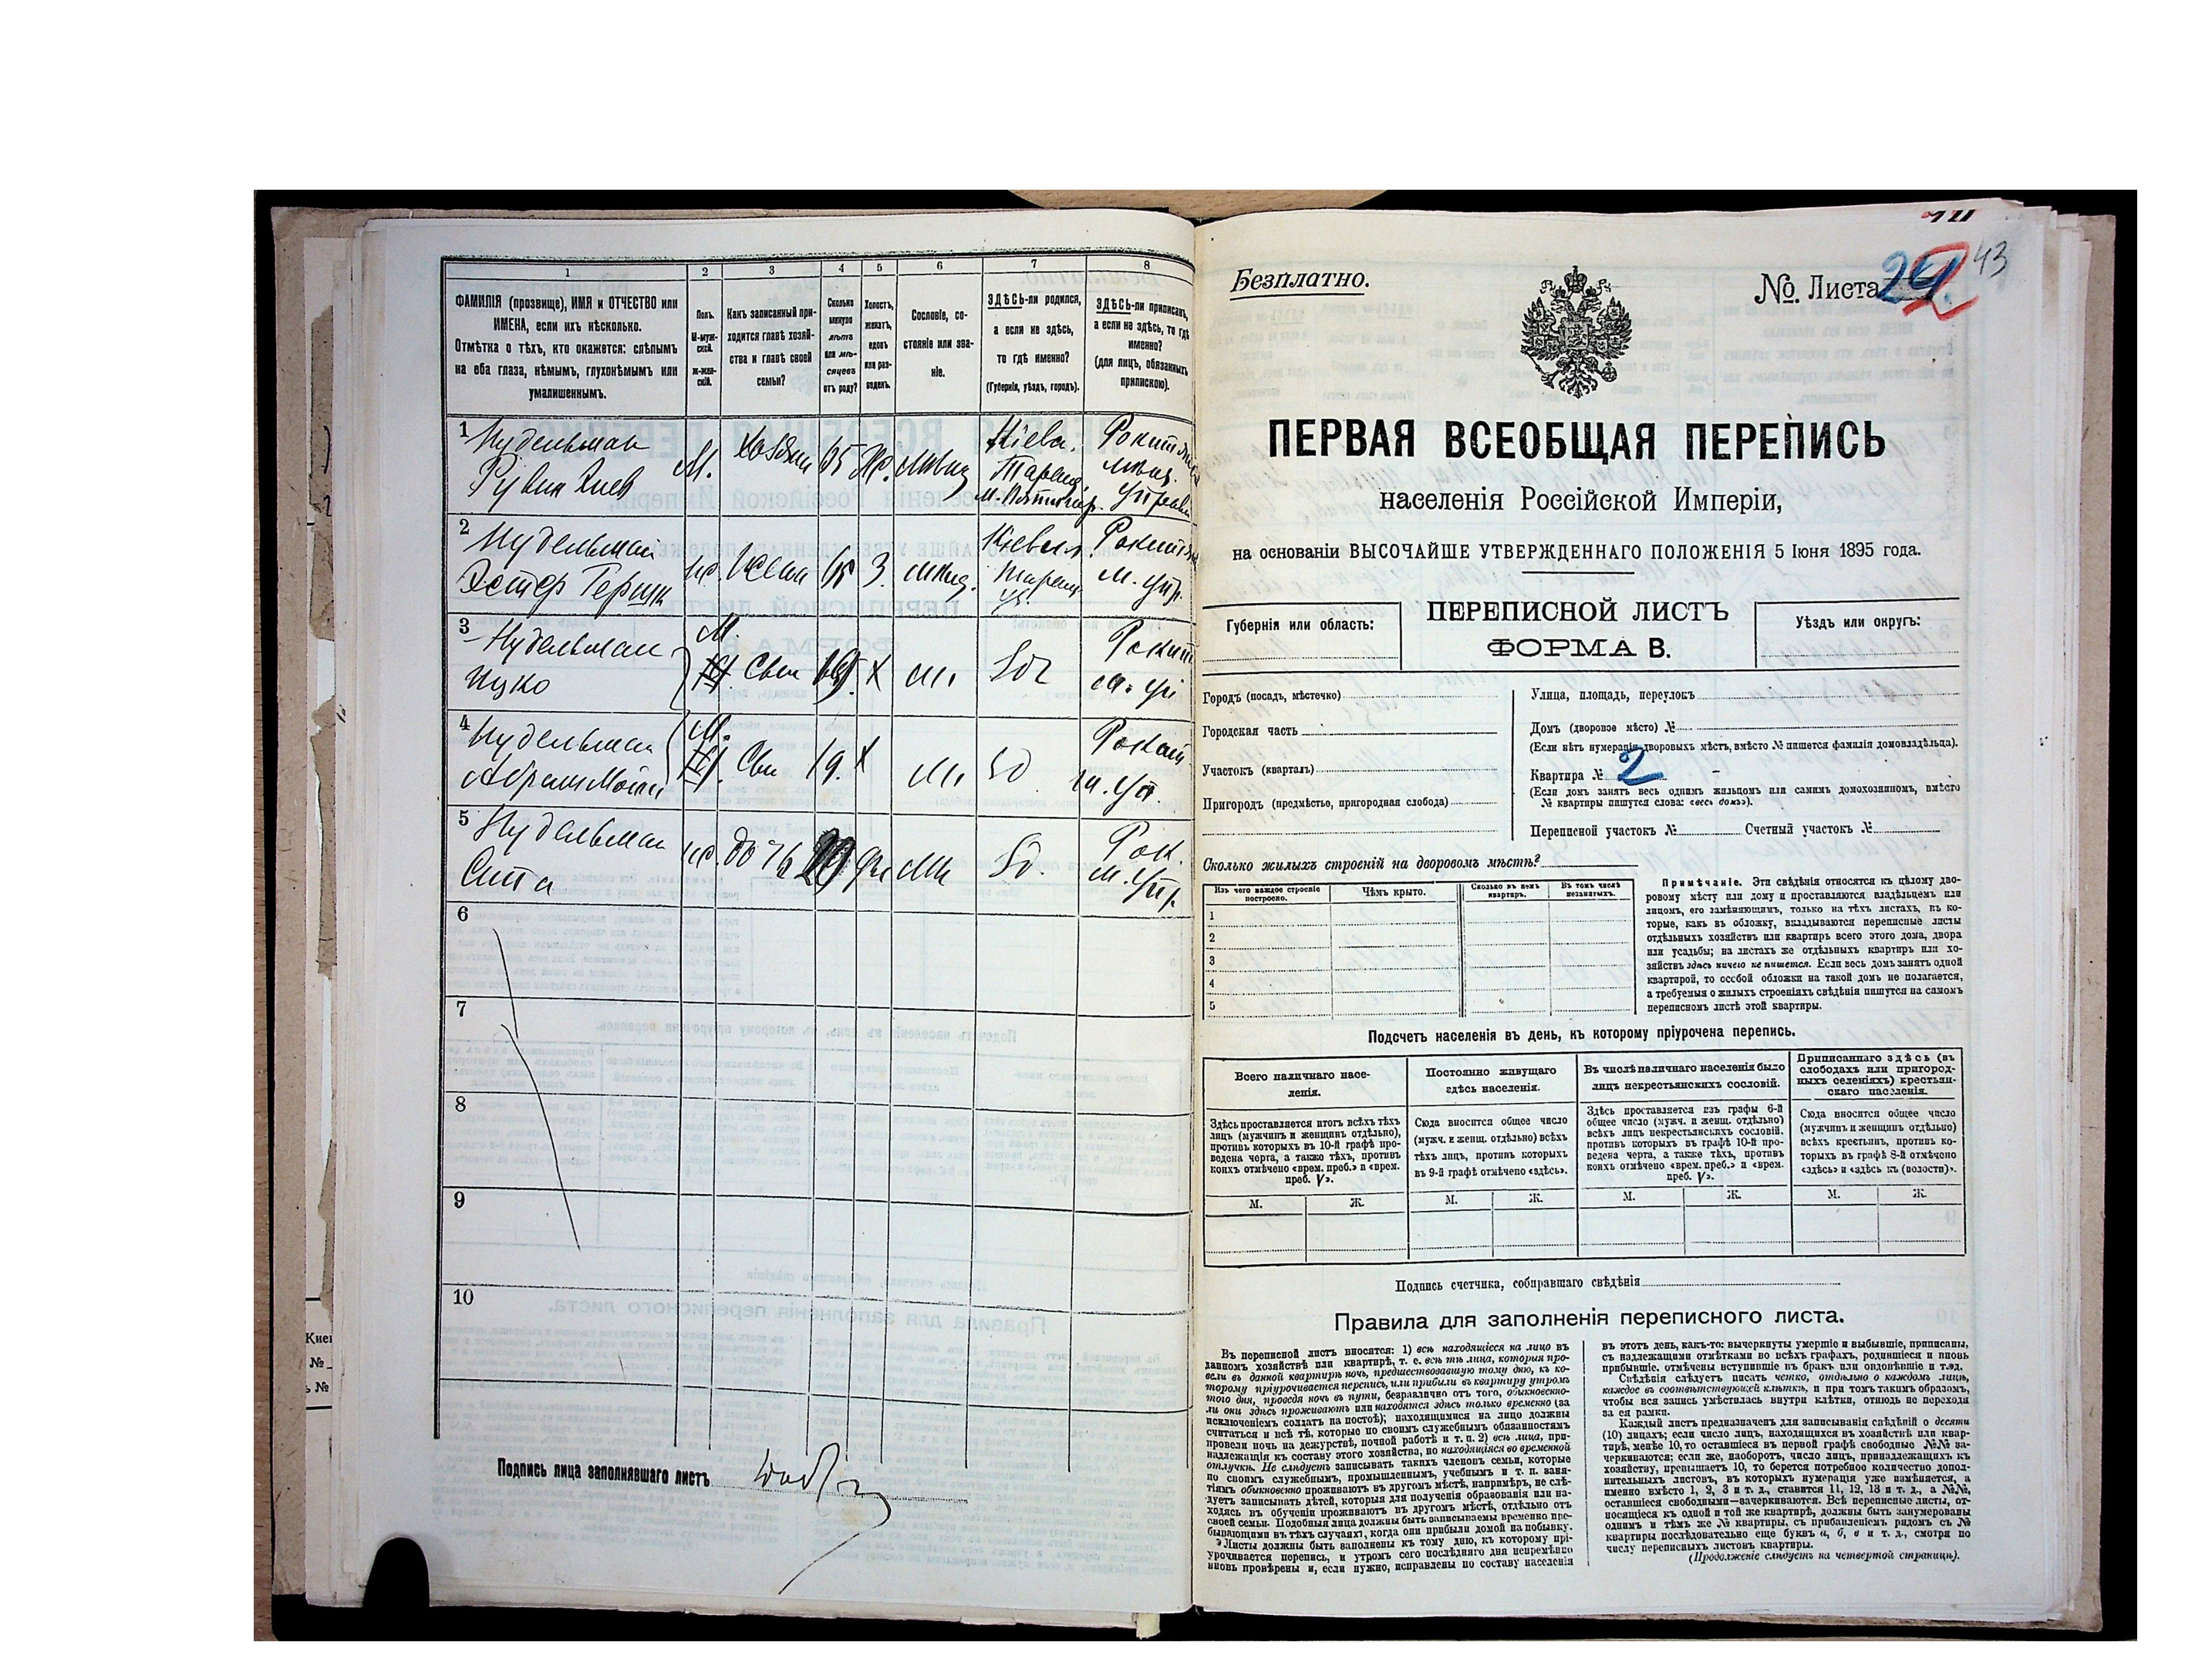 1
2
3
4
5
6
7
8
ФАМИЛІЯ (прозвище), ИМЯ и ОТЧЕСТВО или
ИМЕНА, если ихъ нѣсколько.
Отмѣтка о тѣхъ, кто окажется: слѣпымъ
на оба глаза, нѣмымъ, глухонѣмымъ или
умалишеннымъ.
Полъ.
М-муж-
ской.
ж-жен-
скій.
Какъ записанный при-
ходится главѣ хозяй-
ства и главѣ своей
семьи?
Сколько
минуло
лѣтъ
или мѣ-
сяцевъ
отъ роду?
Холостъ,
женатъ,
вдовъ
или раз-
веденъ.
Сословіе, со-
стояніе или зва-
ніе.
ЗДѢСЬ-ли родился,
а если не здѣсь,
то гдѣ именно?
(Губернія, уѣздъ, городъ).
ЗДѢСЬ-ли приписанъ,
а если не здѣсь, то гдѣ
именно?
(для лицъ, обязанныхъ
припискою).
1 Нудельман
Рувин
М.
Хозяин
Кіевс.
Таращ.
Рокит
2 Нудельман
Эстер Гершк
Жена
З.
Кіевск.
Таращ.
у.
Рокит
м. упр.
3 Нудельман
Ицко
М.
Сын
X
Рокит
4 Нудельман
Абрам Мошк
М.
Сын
19.
X
5 Нудельман
Сипа
дочь
Рок.
м. упр.
6
7
8
9
10
Подпись лица заполнявшаго листъ
Безплатно.
№ Листа
43
ПЕРВАЯ ВСЕОБЩАЯ ПЕРЕПИСЬ
населенія Россійской Имперіи,
на основаніи ВЫСОЧАЙШЕ УТВЕРЖДЕННАГО ПОЛОЖЕНІЯ 5 Іюня 1895 года.
Губернія или область:
ПЕРЕПИСНОЙ ЛИСТЪ
ФОРМА В.
Уѣздъ или округъ:
Городъ (посадъ, мѣстечко)
Городская часть
Участокъ (кварталъ)
Пригородъ (предмѣстье, пригородная слобода)
Улица, площадь, переулокъ
Домъ (дворовое мѣсто) №
(Если нѣтъ нумераціи дворовыхъ мѣстъ, вмѣсто № пишется фамилія домовладѣльца).
Квартира № 2
(Если домъ занятъ весь однимъ жильцомъ или самимъ домохозяиномъ, вмѣсто
№ квартиры пишутся слова: «весь домъ»).
Переписной участокъ № Счетный участокъ №
Сколько жилыхъ строеній на дворовомъ мѣстѣ?
Изъ чего каждое строеніе
построено.
Чѣмъ крыто.
Сколько въ немъ
квартиръ.
Въ томъ числѣ
незанятыхъ.
1
2
3
4
5
Примѣчаніе. Эти свѣдѣнія относятся къ цѣлому дво-
ровому мѣсту или дому и проставляются владѣльцемъ или
лицомъ, его замѣняющимъ, только на тѣхъ листахъ, въ ко-
торые, какъ въ обложку, вкладываются переписные листы
отдѣльныхъ хозяйствъ или квартиръ всего этого дома, двора
или усадьбы; на листахъ же отдѣльныхъ квартиръ или хо-
зяйствъ здѣсь ничего не пишется. Если весь домъ занятъ одной
квартирой, то особой обложки на такой домъ не полагается,
а требуемыя о жилыхъ строеніяхъ свѣдѣнія пишутся на самомъ
переписномъ листѣ этой квартиры.
Подсчетъ населенія въ день, къ которому пріурочена перепись.
Всего наличнаго насе-
ленія.
Постоянно живущаго
здѣсь населенія.
Въ числѣ наличнаго населенія было
лицъ некрестьянскихъ сословій.
Приписаннаго здѣсь (въ
слободахъ или пригород-
ныхъ селеніяхъ) крестьян-
скаго населенія.
Здѣсь проставляется итогъ всѣхъ тѣхъ
лицъ (мужчинъ и женщинъ отдѣльно),
противъ которыхъ въ 10-й графѣ про-
ведена черта, а также тѣхъ, противъ
коихъ отмѣчено «врем. преб.» и «врем.
преб. V».
Сюда вносится общее число
(мужч. и женщ. отдѣльно) всѣхъ
тѣхъ лицъ, противъ которыхъ
въ 9-й графѣ отмѣчено «здѣсь».
Здѣсь проставляется изъ графы 6-й
общее число (мужч. и женщ. отдѣльно)
всѣхъ лицъ некрестьянскихъ сословій,
противъ которыхъ въ графѣ 10-й про-
ведена черта, а также тѣхъ, противъ
коихъ отмѣчено «врем. преб.» и «врем.
преб. V».
Сюда вносится общее число
(мужчинъ и женщинъ отдѣльно)
всѣхъ крестьянъ, противъ ко-
торыхъ въ графѣ 8-й отмѣчено
«здѣсь» и «здѣсь къ (волости)».
М. Ж. М. Ж. М. Ж. М. Ж.
Подпись счетчика, собиравшаго свѣдѣнія
Правила для заполненія переписного листа.
Въ переписной листъ вносятся: 1) всѣ находящіеся на лицо въ
данномъ хозяйствѣ или квартирѣ, т. е. всѣ тѣ лица, которыя про-
вели въ данной квартирѣ ночь, предшествовавшую тому дню, къ ко-
торому пріурочивается перепись, или прибыли въ квартиру утромъ
того дня, проведя ночь въ пути, безразлично отъ того, обыкновенно-
ли они здѣсь проживаютъ или находятся здѣсь только временно (за
исключеніемъ солдатъ на постоѣ); находящимися на лицо должны
считаться и всѣ тѣ, которые по своимъ служебнымъ обязанностямъ
провели ночь на дежурствѣ, ночной работѣ и т. п. 2) всѣ лица, при-
надлежащія къ составу этого хозяйства, но находящіяся во временной
отлучкѣ. Не слѣдуетъ записывать такихъ членовъ семьи, которые
по своимъ служебнымъ, промышленнымъ, учебнымъ и т. п. заня-
тіямъ обыкновенно проживаютъ въ другомъ мѣстѣ, напримѣръ, не слѣ-
дуетъ записывать дѣтей, которыя для полученія образованія или на-
ходясь въ обученіи проживаютъ въ другомъ мѣстѣ, отдѣльно отъ
своей семьи. Подобныя лица должны быть записываемы временно пре-
бывающими въ тѣхъ случаяхъ, когда они прибыли домой на побывку.
Листы должны быть заполнены къ тому дню, къ которому прі-
урочивается перепись, и утромъ сего послѣдняго дня непремѣнно
вновь провѣрены и, если нужно, исправлены по составу населенія
въ этотъ день, какъ-то: вычеркнуты умершіе и выбывшіе, приписаны,
съ надлежащими отмѣтками во всѣхъ графахъ, родившіеся и вновь
прибывшіе, отмѣчены вступившіе въ бракъ или овдовѣвшіе и т.д.
Свѣдѣнія слѣдуетъ писать четко, отдѣльно о каждомъ лицѣ,
каждое въ соотвѣтствующей клѣткѣ, и при томъ такимъ образомъ,
чтобы вся запись умѣстилась внутри клѣтки, отнюдь не переходя
за ея рамки.
Каждый листъ предназначенъ для записыванія свѣдѣній о десяти
(10) лицахъ; если число лицъ, находящихся въ хозяйствѣ или квар-
тирѣ, менѣе 10, то оставшіеся въ первой графѣ свободные №№ за-
черкиваются; если же, наоборотъ, число лицъ, принадлежащихъ къ
хозяйству, превышаетъ 10, то берется потребное количество допол-
нительныхъ листовъ, въ которыхъ нумерація уже измѣняется, а
именно вмѣсто 1, 2, 3 и т. д., ставится 11, 12, 13 и т. д., а №№,
оставшіеся свободными—зачеркиваются. Всѣ переписные листы, от-
носящіеся къ одной и той же квартирѣ, должны быть занумерованы
однимъ и тѣмъ же № квартиры, съ прибавленіемъ рядомъ съ №
квартиры послѣдовательно еще буквъ а, б, в и т. д., смотря по
числу переписныхъ листовъ квартиры.
(Продолженіе слѣдуетъ на четвертой страницѣ).